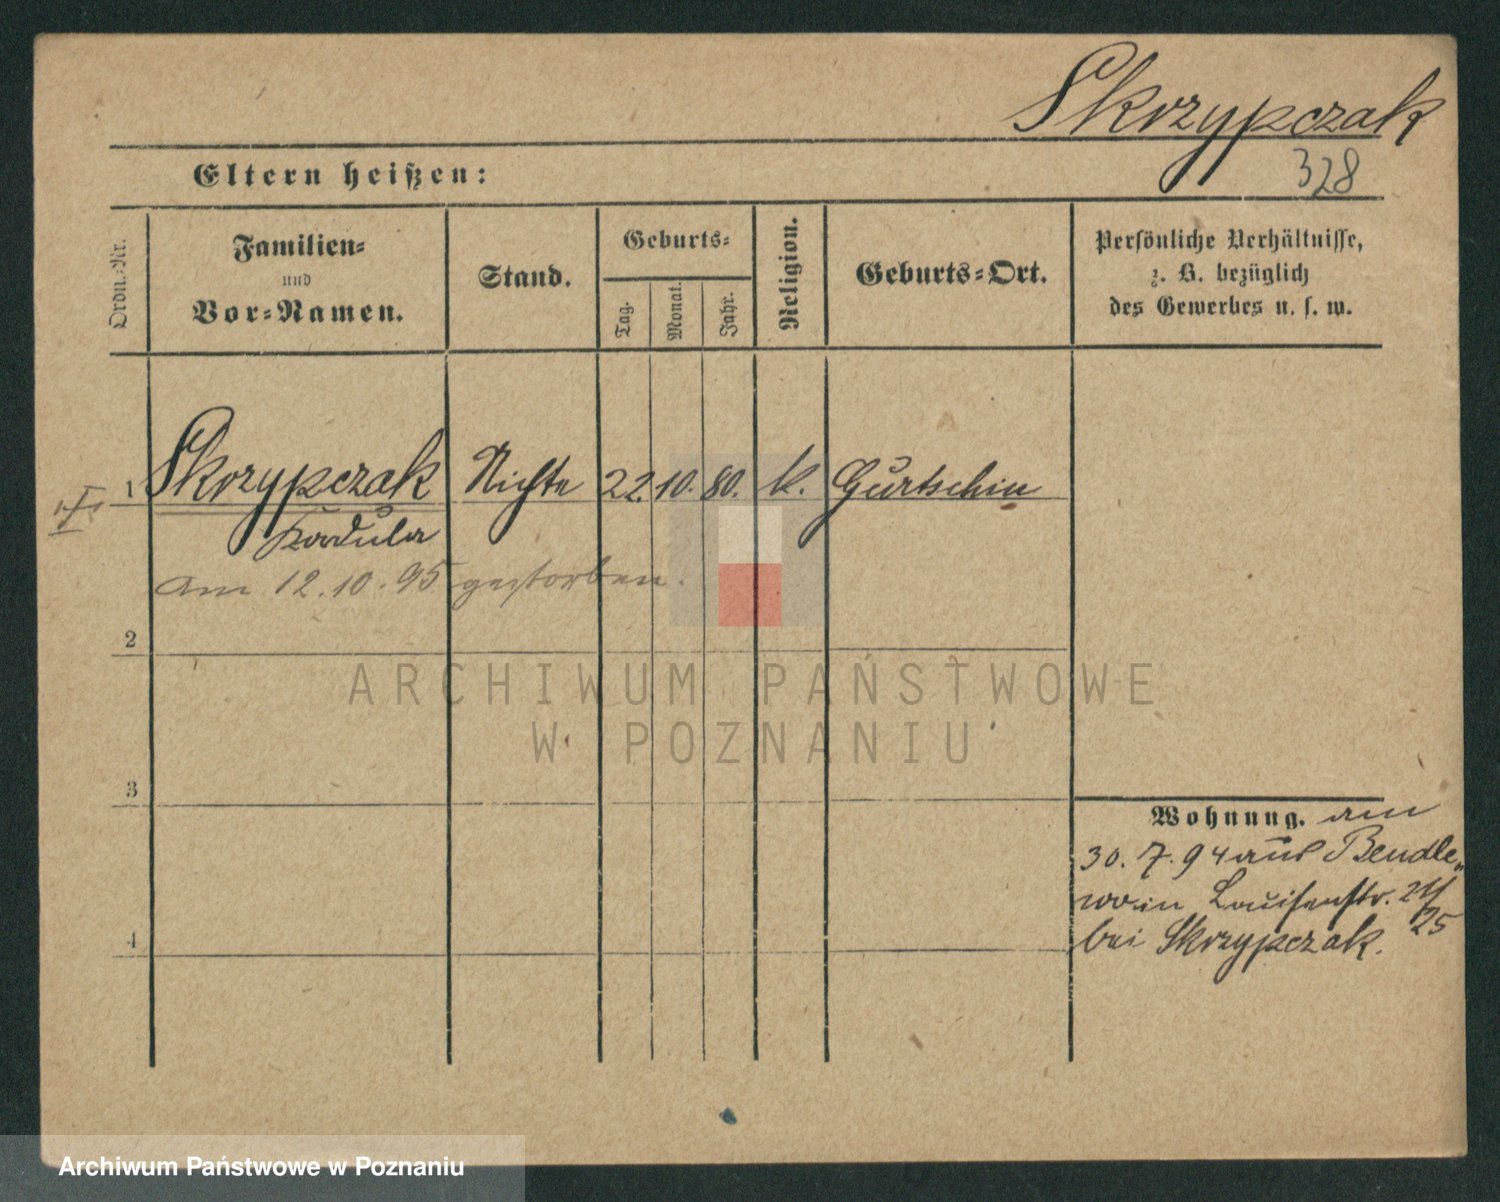 Skrzypczak
328
Eltern heißen:
Ordn.-Nr.
Familien-
und
Vor-Namen.
Stand.
Geburts-
Tag.
Monat.
Jahr.
Religion.
Geburts-Ort.
Persönliche Verhältnisse,
z. B. bezüglich
des Gewerbes u. s. w.
1 Skrzypczak Nichte 22. 10. 80. k. Gurtschin
am 12.10.95 gestorben.
2
3
4
Wohnung. am
30.7.94 aus Bendle-
wo in Louisenstr. 24/25
bei Skrzypczak.
ARCHIWUM PAŃSTWOWE
W POZNANIU
Archiwum Państwowe w Poznaniu